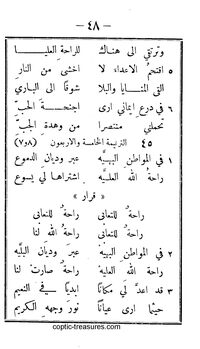 — ٤٨ —
وترتقي الى هناك للراحة العليا
٥ اقتحم الاعداء لا اخشى من النار
لا المنايا والبلا شوقا الى الباري
٦ في درع ايماني ارى اجنحة الحب
تحملني منتصرا من وهدة الجب
٤٥ الترنيمة الخامسة والاربعون (٨و٧)
١ في المواطن البهيه عبر وديان الدموع
راحة الله العليه اشتراها لي يسوع
« قرار »
راحة للتعابى راحة للتعابى
راحة للتعابى راحة الله لنا
٢ في المواطن البهيه عبر وديان البليه
راحة الله العليه راحة صارت لنا
٣ قد اعد لي مكانا ابديا في النعيم
حيثما ارى عيانا نور وجهه الكريم
coptic-treasures.com